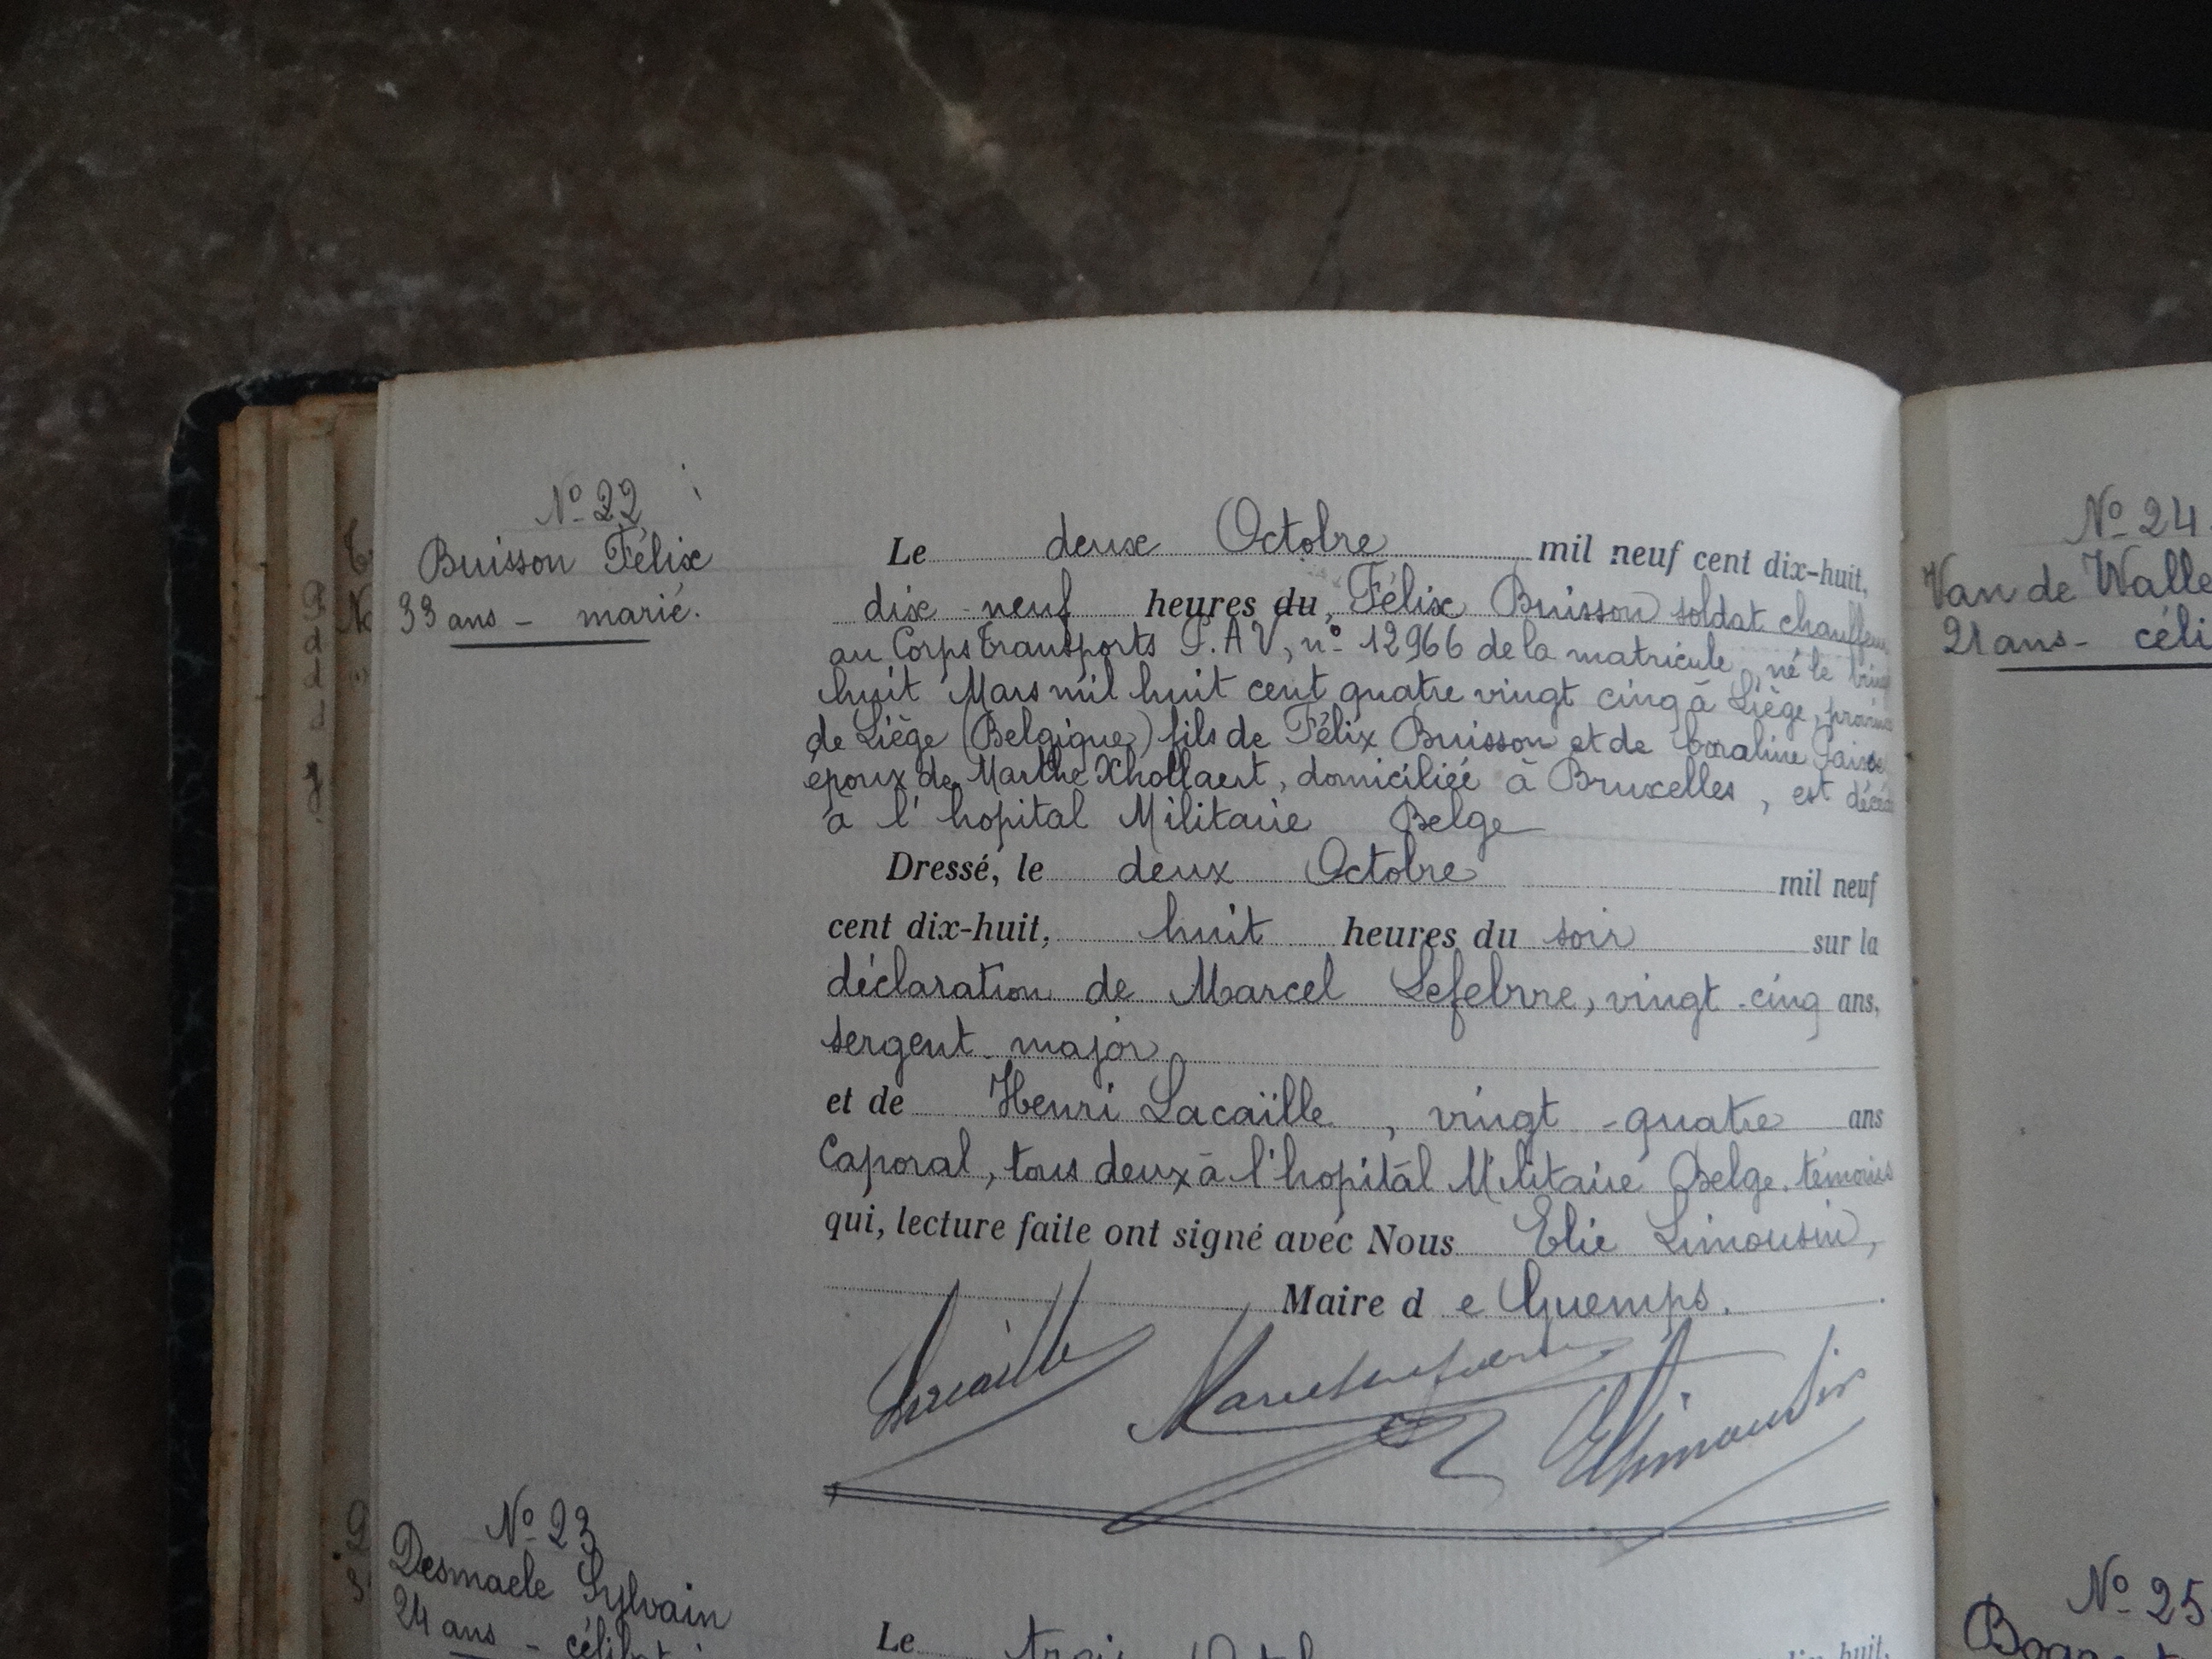 N° 22
Buisson Félix
33 ans - marié.
Le deux Octobre mil neuf cent dix-huit,
dix-neuf heures du, Félix Buisson soldat chauffeur
au Corps Transports S.A.V, n° 12966 de la matricule, né le vingt
huit Mars mil huit cent quatre vingt cinq à Liège, province
de Liège (Belgique) fils de Félix Buisson et de
époux de Marthe Khollaert, domiciliée à Bruxelles, est décédé
à l'hopital Militaire Belge
Dressé, le deux Octobre mil neuf
cent dix-huit, huit heures du soir sur la
déclaration de Marcel Lefebvre, vingt-cinq ans,
sergent-major
et de Henri Lacaïlle, vingt-quatre ans
Caporal, tous deux à l'hopital Militaire Belge. témoins
qui, lecture faite ont signé avec Nous Elie Limousin,
Maire d e Guemps.
Lacaille Marcel Lefebvre E Limousin
N° 23
Desmaele Sylvain
24 ans - célibat
Le trois Oct dix-huit,
N° 24
Van de Walle
21 ans - céli
N° 25